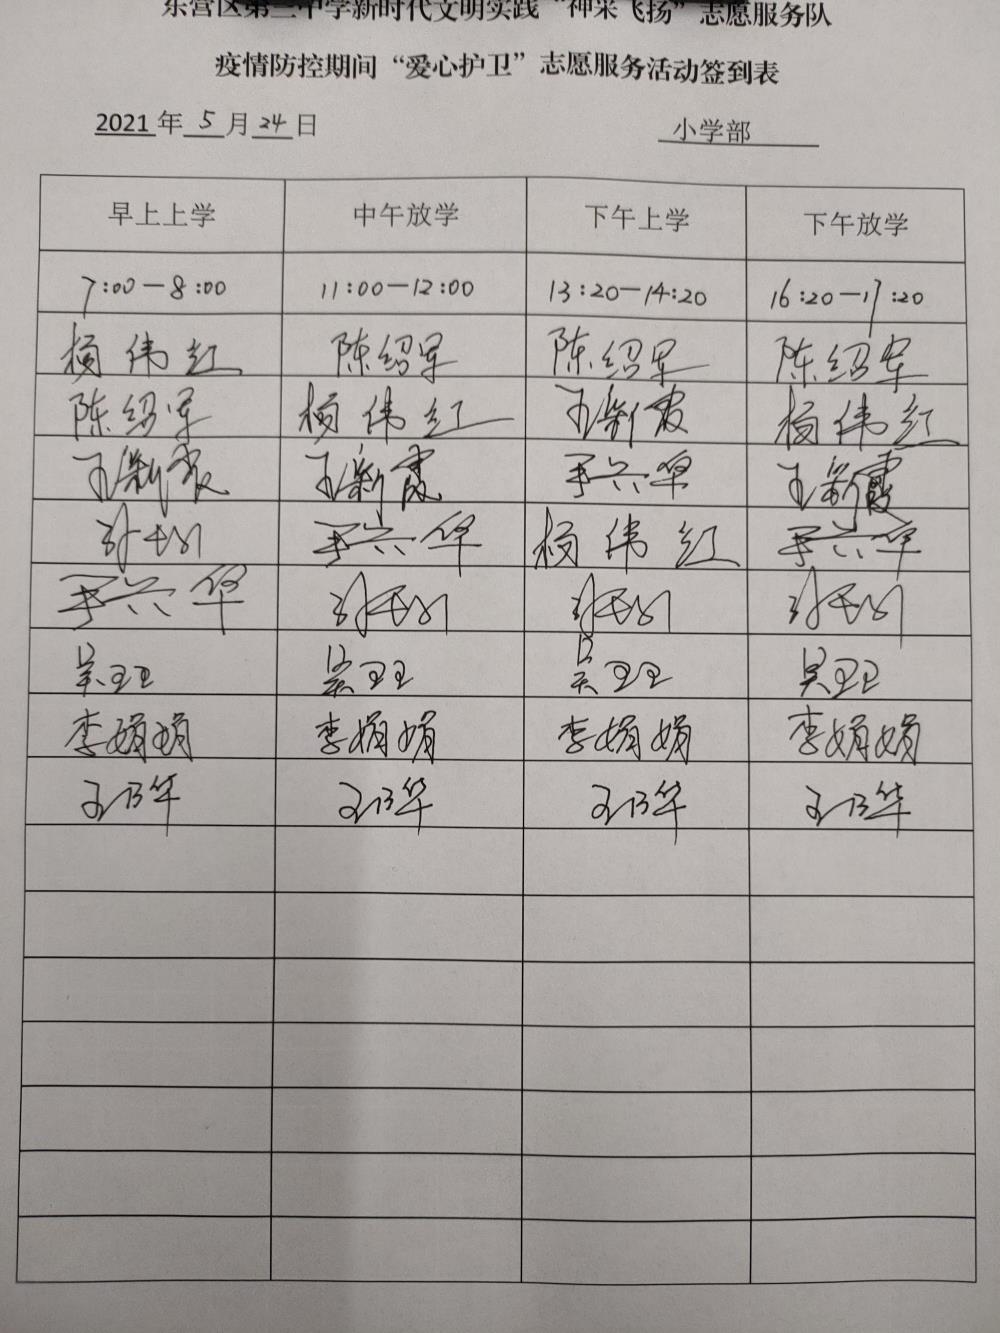 东营区第三中学新时代文明实践“神采飞扬”志愿服务队
疫情防控期间“爱心护卫”志愿服务活动签到表
2021年5月24日 小学部
早上上学 中午放学 下午上学 下午放学
7:00—8:00 11:00—12:00 13:20—14:20 16:20—17:20
杨伟红 陈绍军 陈绍军 陈绍军
陈绍军 杨伟红 王新霞 杨伟红
王新霞 王新霞 尹兴华 王新霞
尹兴华 杨伟红 尹兴华
尹兴华
吴卫卫 吴卫卫 吴卫卫 吴卫卫
李娟娟 李娟娟 李娟娟 李娟娟
王乃华 王乃华 王乃华 王乃华